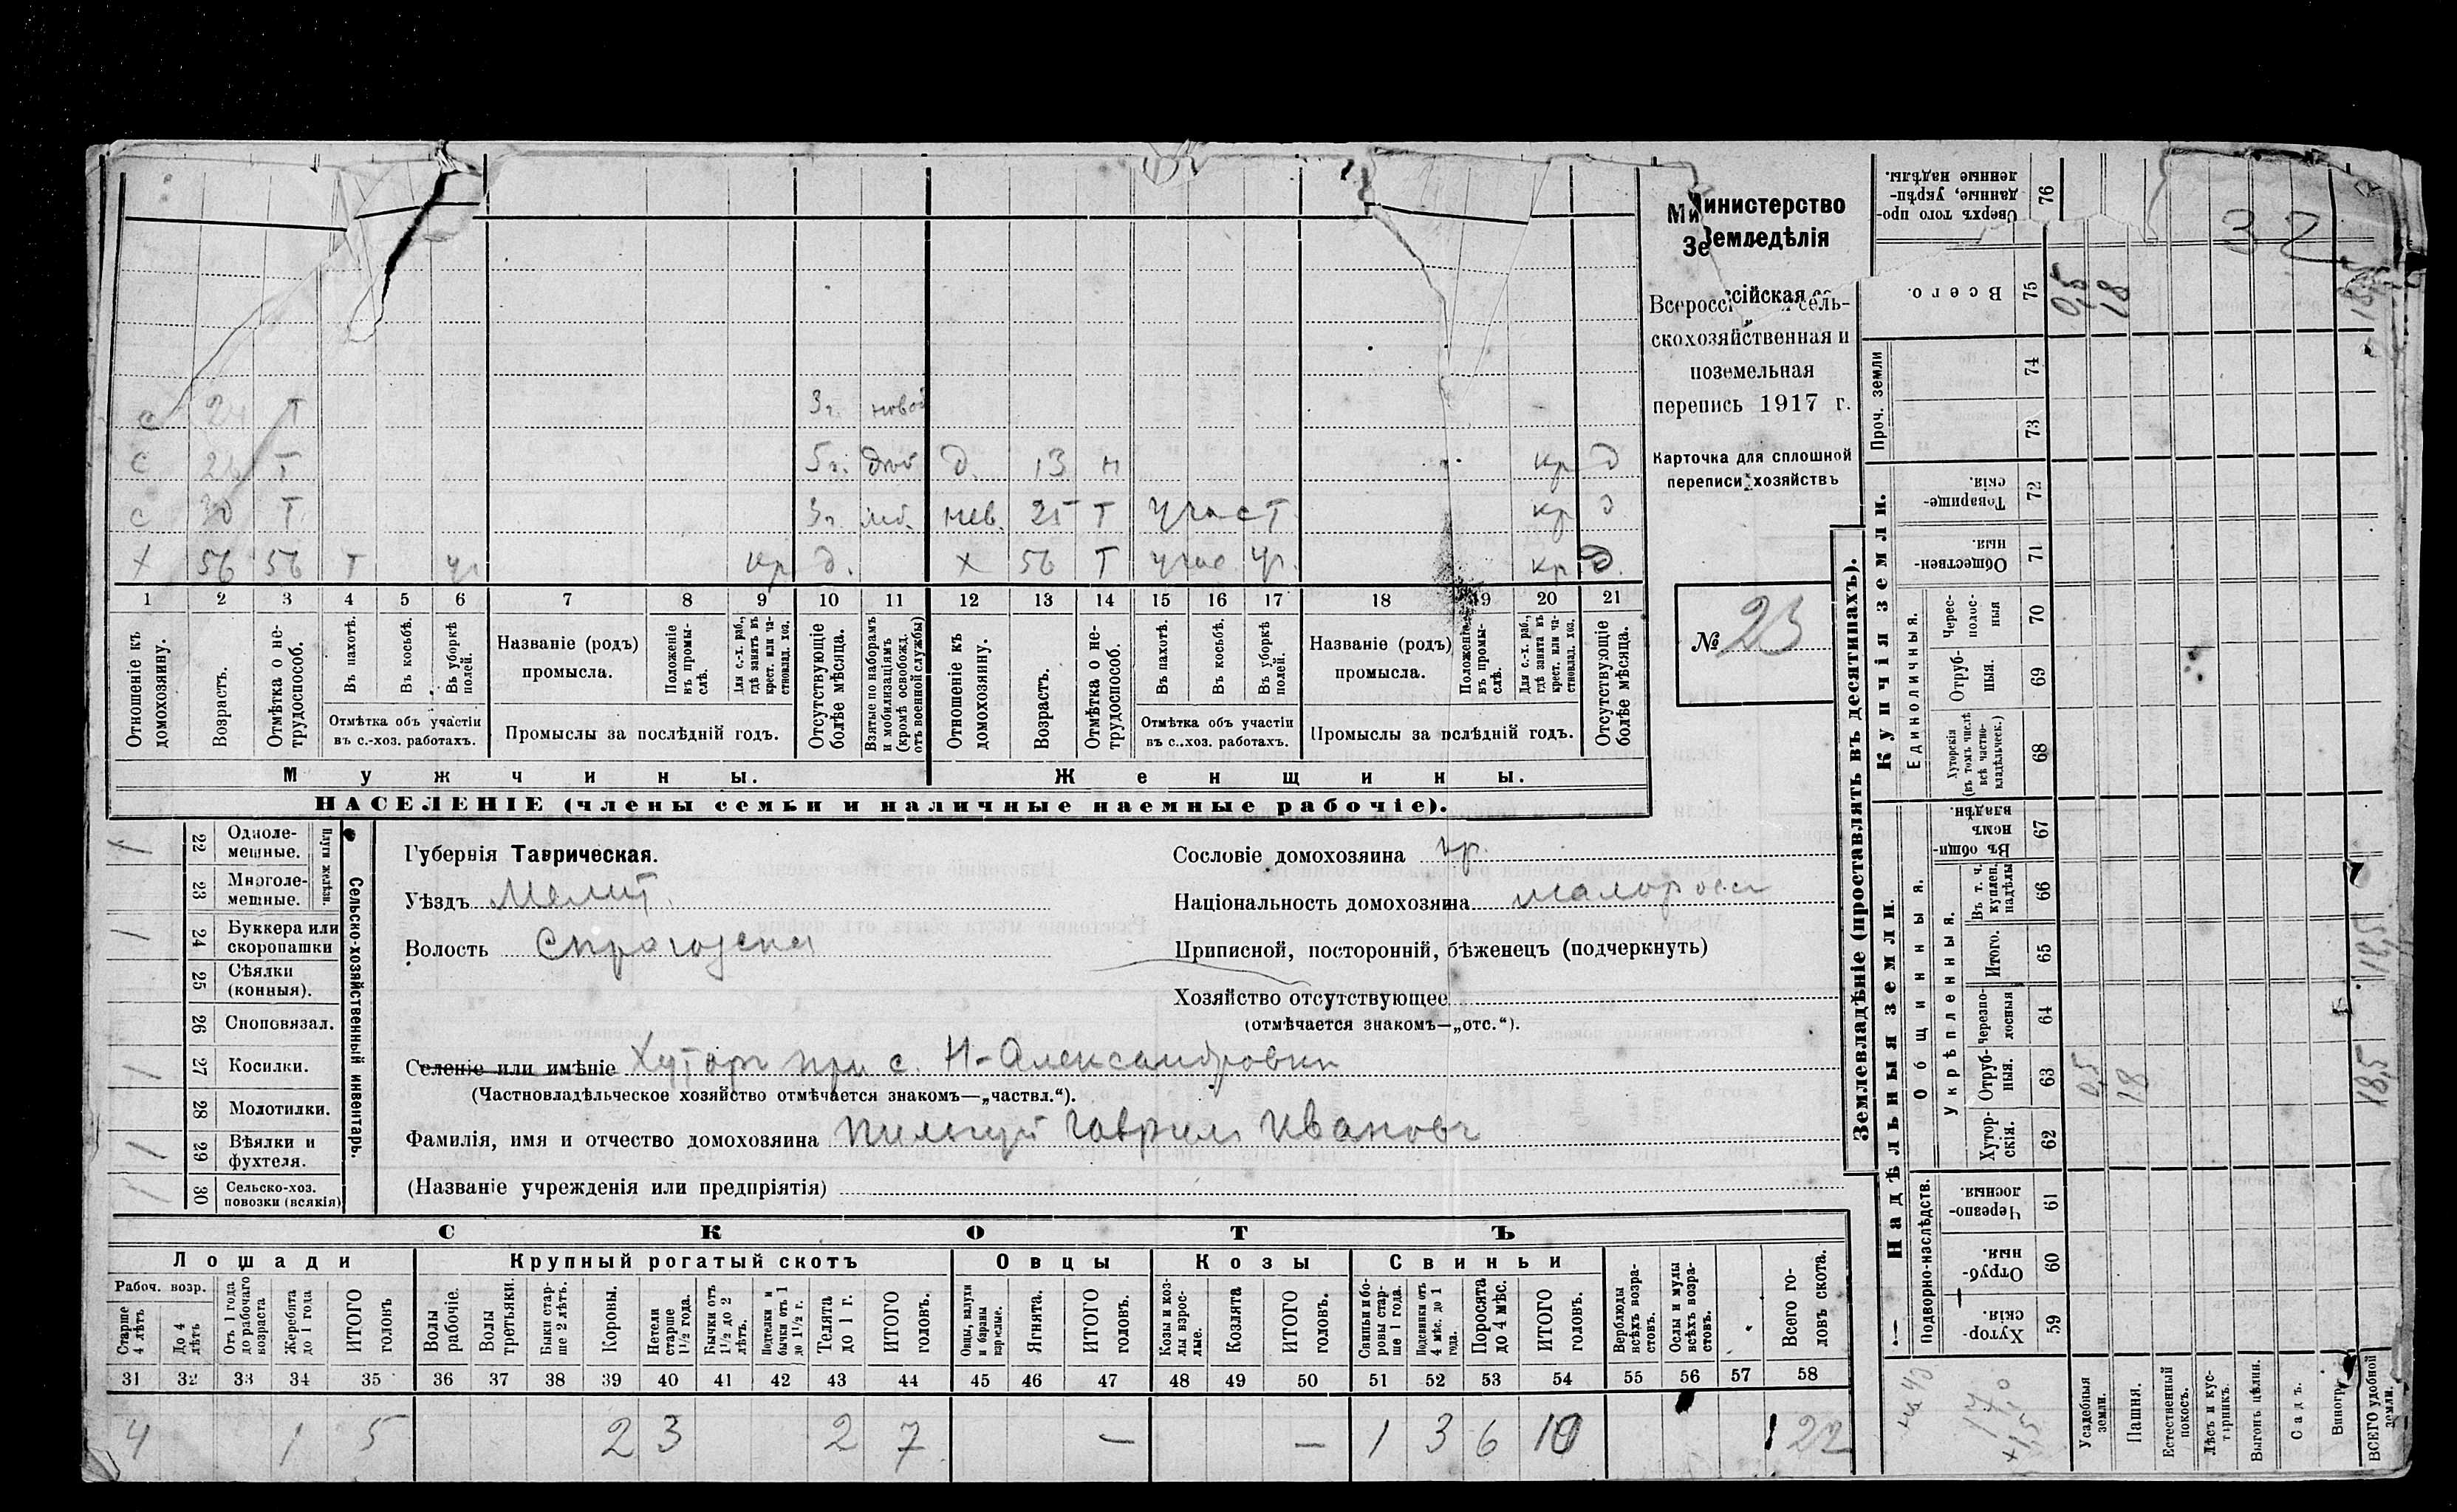 Министерство
Земледѣлія
Всероссійская сель-
скохозяйственная и
поземельная
перепись 1917 г.
Карточка для сплошной
переписи хозяйствъ
№ 23
с 24 т 3 г.
с т 5 г. д. 13 н кр д
с 30 т 3 г. нев. 25 т участ кр д
х 56 56 т уч кр д. х 56 т учас уч. кр д.
1 2 3 4 5 6 7 8 9 10 11 12 13 14 15 16 17 18 19 20 21
Отношеніе къ домохозяину.
Возрастъ.
Отмѣтка о не-трудоспособ.
Въ пахотѣ.
Въ косьбѣ.
Въ уборкѣ полей.
Отмѣтка объ участіи
въ с.-хоз. работахъ.
Названіе (родъ)
промысла.
Положеніе въ промы-слѣ.
Для с.-х. раб., гдѣ занятъ въ крест. или ча-стновлад. хоз.
Промыслы за послѣдній годъ.
Отсутствующіе болѣе мѣсяца.
Взятые по наборамъ и мобилизаціямъ (кромѣ освобожд. отъ военной службы)
Отношеніе къ домохозяину.
Возрастъ.
Отмѣтка о не-трудоспособ.
Въ пахотѣ.
Въ косьбѣ.
Въ уборкѣ полей.
Отмѣтка объ участіи
въ с.-хоз. работахъ.
Названіе (родъ)
промысла.
Положеніе въ промы-слѣ.
Для с.-х. раб., гдѣ занята въ крест. или ча-стновлад. хоз.
Промыслы за пслѣдній годъ.
Отсутствующіе болѣе мѣсяца.
Мужчины. Женщины.
НАСЕЛЕНІЕ (члены семьи и наличные наемные рабочіе).
Сельско-хозяйственный инвентарь.
Плуги желѣзн.
1 22 Одноле-мешные.
23 Многоле-мешные.
1 24 Буккера или скоропашки
25 Сѣялки (конныя).
26 Сноповязал.
1 27 Косилки.
28 Молотилки.
1 1 29 Вѣялки и фухтеля.
1 1 30 Сельско-хоз. повозки (всякія)
Губернія Таврическая.
Уѣздъ Мелит.
Волость
Сословіе домохозяина кр.
Національность домохозяина малоросс
Приписной, посторонній, бѣженецъ (подчеркнуть)
Хозяйство отсутствующее
(отмѣчается знакомъ—„отс.“).
Селеніе или имѣніе Хуторъ при с. Н-Александровки
(Частновладѣльческое хозяйство отмѣчается знакомъ—„частвл.“).
Фамилія, имя и отчество домохозяина Гаврил Ивановъ
(Названіе учрежденія или предпріятія)
СКОТЪ
Лошади Крупный рогатый скотъ Овцы Козы Свиньи
Рабоч. возр.
Старше 4 лѣтъ
До 4 лѣтъ
Отъ 1 года до рабочаго возраста
Жеребята до 1 года
ИТОГО головъ
Волы рабочіе.
Волы третьяки.
Быки стар-ше 2 лѣтъ.
Коровы.
Нетели старше 1½ года.
Бычки отъ 1½ до 2 лѣтъ.
Подтелки и бычки отъ 1 до 1½ г.
Телята до 1 г.
ИТОГО головъ.
Овцы, валухи и бараны взрослые.
Ягнята.
ИТОГО головъ.
Козы и коз-лы взрос-лые.
Козлята
ИТОГО головъ.
Свиньи и бо-ровы стар-ше 1 года.
Подсвинки отъ 4 мѣс. до 1 года.
Поросята до 4 мѣс.
ИТОГО головъ.
Верблюды всѣхъ возра-стовъ.
Ослы и мулы всѣхъ возра-стовъ.
Всего го-ловъ скота.
31 32 33 34 35 36 37 38 39 40 41 42 43 44 45 46 47 48 49 50 51 52 53 54 55 56 57 58
4 1 5 2 3 2 7 — — 1 3 6 10 22
Землевладѣніе (проставлять въ десятинахъ).
Надѣльныя земли.
Купчія земли.
Проч. земли
Подворно-наслѣдств.
Общинныя.
Укрѣпленныя.
Единоличныя.
Хутор-скія. 59
Отруб-ныя. 60
Черезпо-лосныя. 61
Хутор-скія. 62
Отруб-ныя. 63 0,5 18 18,5
Черезпо-лосныя 64
Итого. 65 18,5
Въ т. ч. куплен. надѣлы 66
Въ общи-номъ владѣн. 67
Хуторскія (въ томъ числѣ всѣ частно-владѣльческ.) 68
Отруб-ныя. 69
Черес-полос-ныя 70
Обществен-ныя. 71
Товарище-скія. 72
73
74
Всего. 75 0,5 18 18,5
Сверхъ того про-данные, укрѣп-ленные надѣлы. 76
32
Усадебныя земли.
Пашня.
Естественный покосъ.
Лѣсъ и кус-тарникъ.
Выгонъ цѣлин.
Садъ.
Виногр.
ВСЕГО удобной земли.